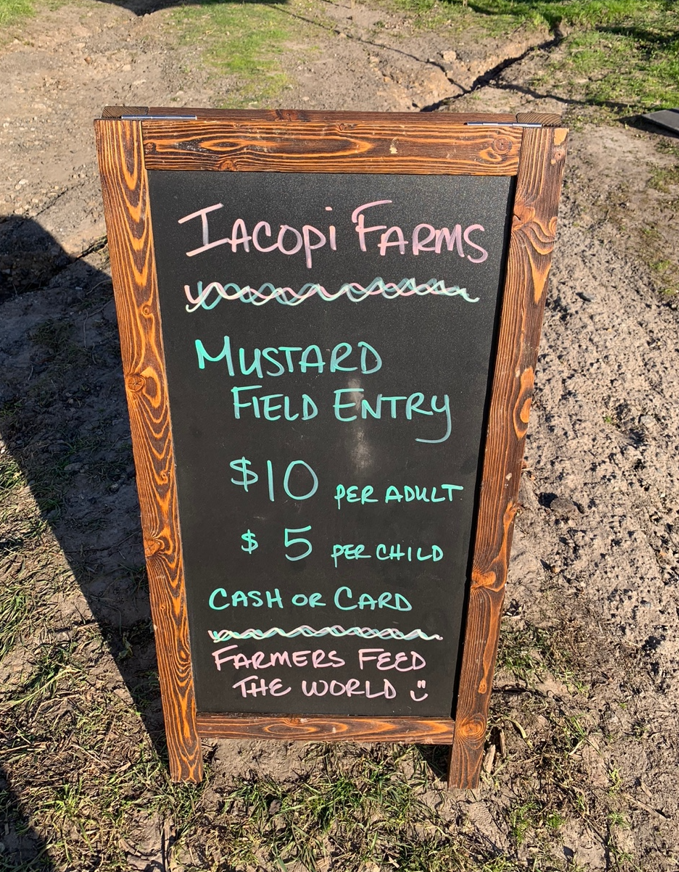 IACOPI FARMS
MUSTARD
FIELD ENTRY
$10 PER ADULT
$ 5 PER CHILD
CASH OR CARD
FARMERS FEED
THE WORLD